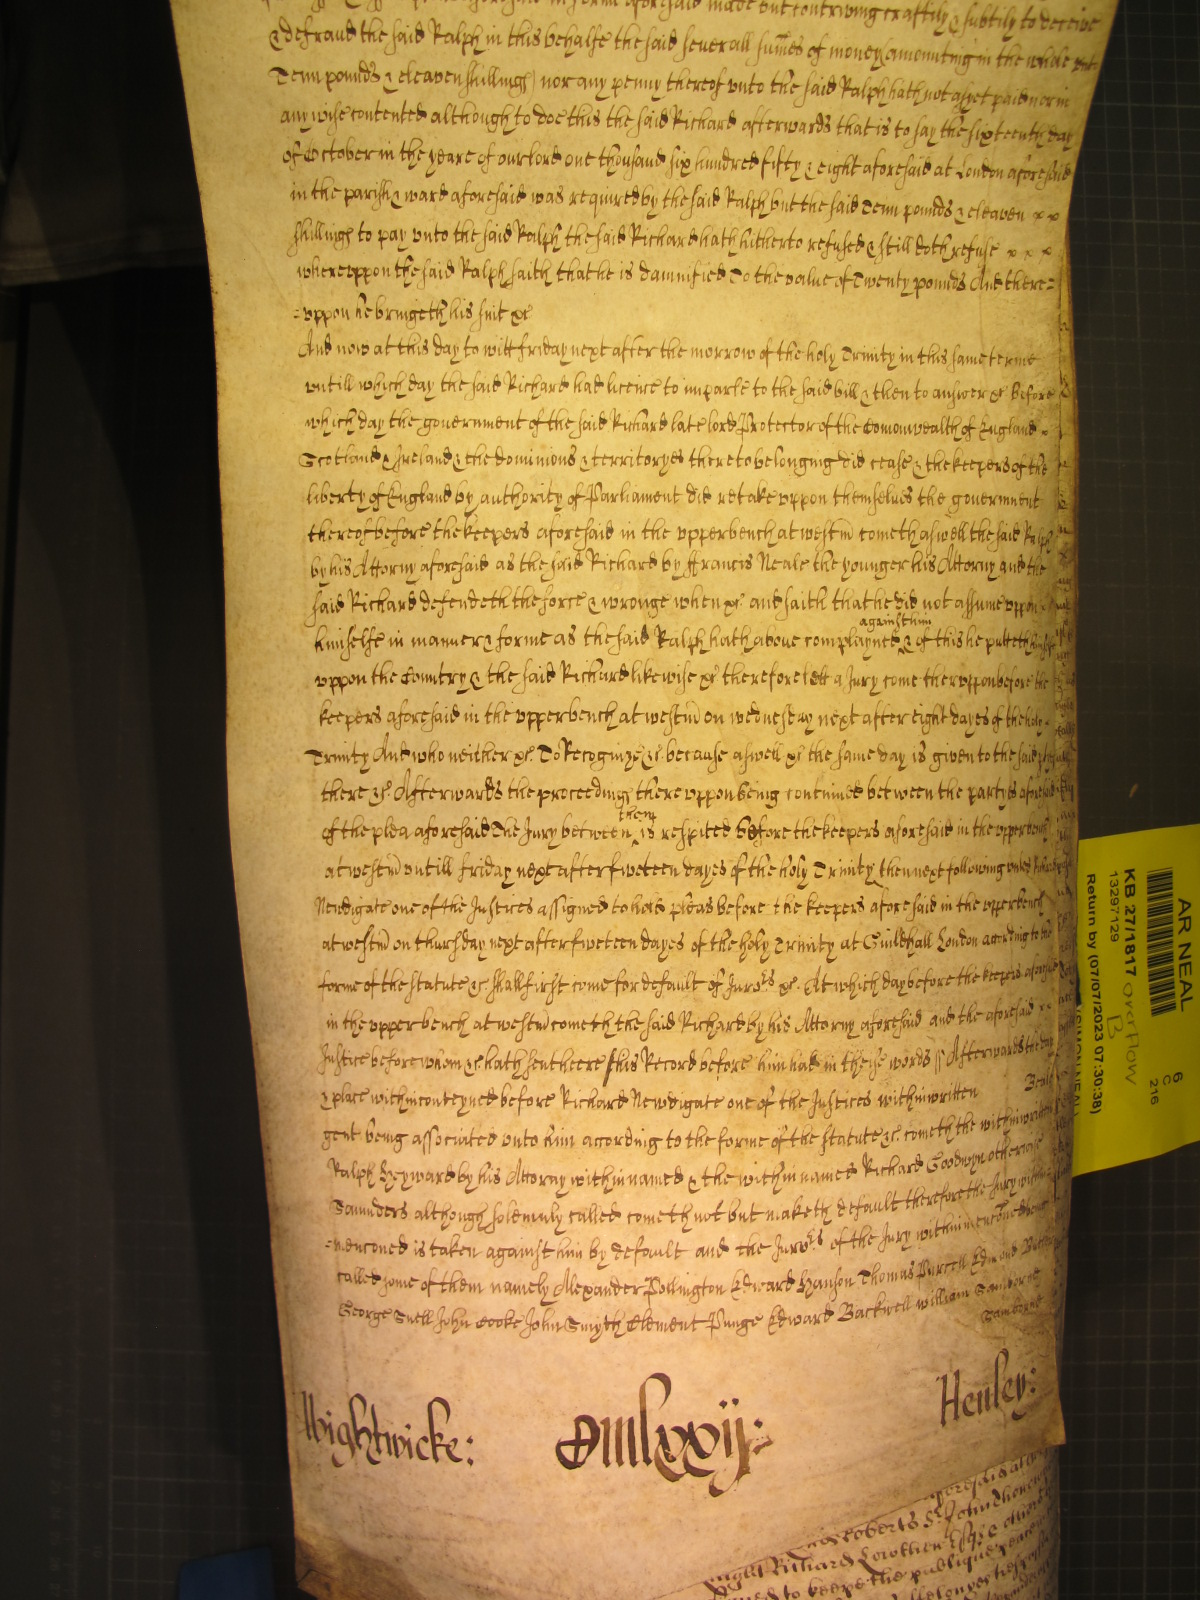 aforesaid in forme aforesaid made but contriving craftily & subtily to deceive
& defraud the said Ralph in this behalfe the said severall sumes of money amounting in the whole unto
Tenn pounds & eleaven shillings nor any penny thereof unto the said Ralph hath not as yet paid nor in
any wise contented although to doe this the said Richard afterwards that is to say the sixteenth day
of October in the yeare of our lord one thousand six hundred fifty & eight aforesaid at London aforesaid
in the parish & ward aforesaid was required by the said Ralph but the said Tenn pounds & eleaven x x
shillings to pay unto the said Ralph the said Richard hath hitherto refused & still doth refuse x x x
whereuppon the said Ralph saith that he is damnified To the value of Twenty pounds And there=
=uppon he bringeth his suit &c
And now at this day to witt friday next after the morrow of the holy Trinity in this same terme
untill which day the said Richard had licence to imparle to the said bill & then to answer &c Before
which day the government of the said Richard late lord Protector of the Comonwealth of England
Scotland & Ireland & the dominions & territoryes thereto belonging did cease & the keepers of the
liberty of England by authority of Parliament did retake uppon themselves the government
thereof before the keepers aforesaid in the upperbench at westm cometh aswell the said Ralph
by his Attorny aforesaid as the said Richard by Francis Neale the younger his Attorny and the
said Richard defendeth the force & wronge when &c and saith that he did not assume uppon
himselfe in manner & forme as the said Ralph hath above complayned against him & of this he putteth himselfe
uppon the Country & the said Richard likewise &c therefore lett a Jury come theruppon before the
keepers aforesaid in the upperbench at westm on wednesday next after eight dayes of the holy
Trinity And who neither &c To Recognize &c because aswell &c the same day is given to the said partyes
there &c Afterwards the proceedings thereuppon being continued between the partyes aforesaid
of the plea aforesaid The Jury between them is respited before the keepers aforesaid in the upperbench
at westm untill friday next after fiveteen dayes of the holy Trinity then next following unles Richard
Newdigate one of the Justices assigned to hold pleas before the keepers aforesaid in the upperbench
at westm on thursday next after fiveteen dayes of the holy Trinity at Guildhall London according to the
forme of the statute &c shall first come for default of Jurors &c At which day before the keepers aforesaid
in the upperbench at westm cometh the said Richard by his Attorny aforesaid and the aforesaid x x
Justice before whom &c hath sent heere this Record before him had in these words Afterwards the day
& place within conteyned before Richard Newdigate one of the Justices within written Beale
gent being associated unto him according to the forme of the statute &c cometh the within written
Ralph Heyward by his Attorny within named & the within named Richard Goodwyn otherwise
Saunders although solemnly called cometh not but maketh default therefore the Jury within
=menconed is taken against him by default and the Jurors of the Jury within menconed being
called some of them namely Alexander Pollington Edward Hanson Thomas Purcell Edmond
George Snell John Cooke John Smyth Clement Punge Edward Backwell william Samborne
Samborne
Wightwicke:
Henley:
AR NEAL
KB 27/1817 overflow
B
13297129
6
C
216
Return by (07/07/2023 07:30:38)